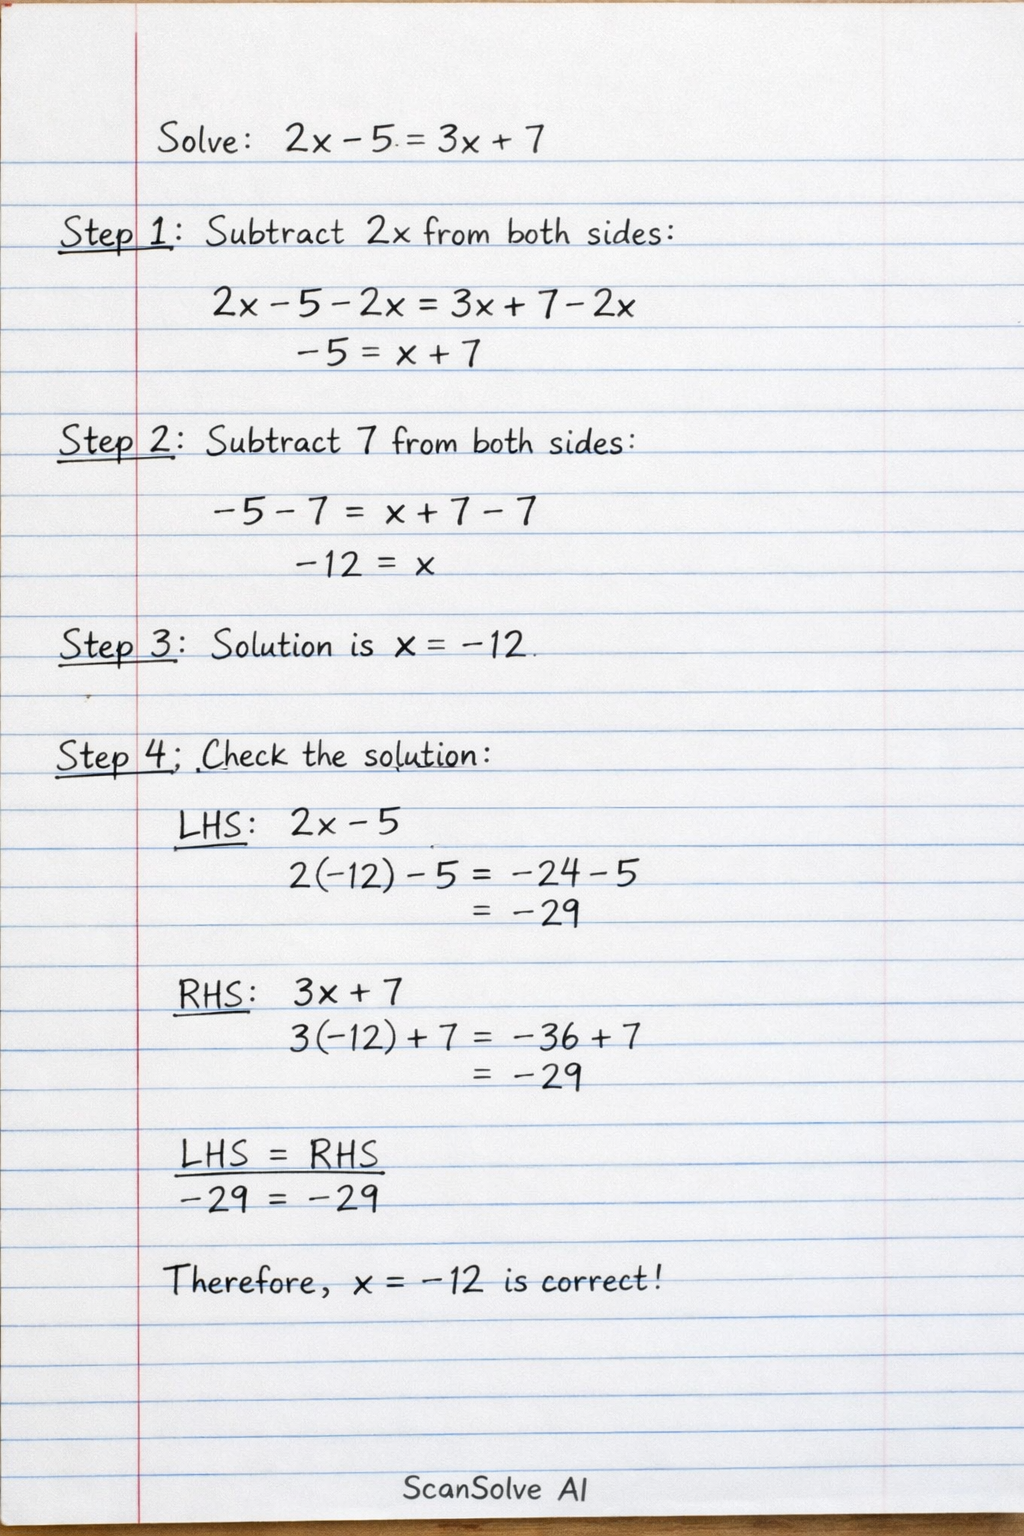 Solve: 2x - 5 = 3x + 7
Step 1: Subtract 2x from both sides:
2x - 5 - 2x = 3x + 7 - 2x
-5 = x + 7
Step 2: Subtract 7 from both sides:
-5 - 7 = x + 7 - 7
-12 = x
Step 3: Solution is x = -12.
Step 4; Check the solution:
LHS: 2x - 5
2(-12) - 5 = -24 - 5
= -29
RHS: 3x + 7
3(-12) + 7 = -36 + 7
= -29
LHS = RHS
-29 = -29
Therefore, x = -12 is correct!
ScanSolve AI